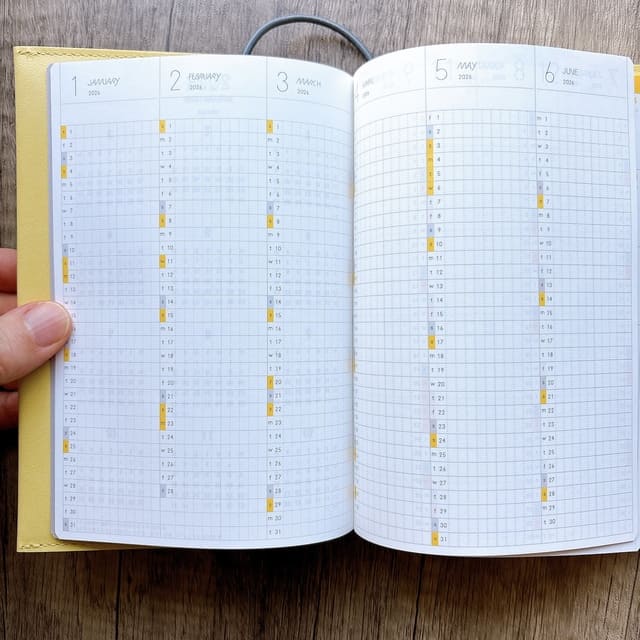 1 JANUARY
2026
t 1
f 2
s 3
s 4
m 5
t 6
w 7
t 8
f 9
s 10
s 11
m 12
t 13
s 18
m 19
t 20
w 21
t 22
f 23
s 24
s 25
m 26
t 27
w 28
t 29
f 30
s 31
2 FEBRUARY
2026
s 1
m 2
t 3
w 4
t 5
f 6
s 7
s 8
m 9
t 10
w 11
t 12
f 13
s 14
s 15
m 16
t 17
w 18
t 19
f 20
s 21
s 22
m 23
t 24
w 25
t 26
f 27
s 28
3 MARCH
2026
s 1
m 2
t 3
w 4
t 5
f 6
s 7
s 8
m 9
t 10
w 11
t 12
f 13
s 14
s 15
m 16
t 17
w 18
t 19
f 20
s 21
s 22
m 23
t 24
w 25
t 26
f 27
s 28
s 29
m 30
t 31
5 MAY
2026
f 1
s 2
s 3
m 4
t 5
w 6
t 7
f 8
s 9
s 10
m 11
t 12
w 13
t 14
f 15
s 16
s 17
m 18
t 19
w 20
t 21
f 22
s 23
s 24
m 25
t 26
w 27
t 28
f 29
s 30
s 31
6 JUNE
2026
m 1
t 2
w 3
t 4
f 5
s 6
s 7
m 8
t 9
w 10
t 11
f 12
s 13
s 14
m 15
t 16
w 17
t 18
f 19
s 20
s 21
m 22
t 23
w 24
t 25
f 26
s 27
s 28
m 29
t 30